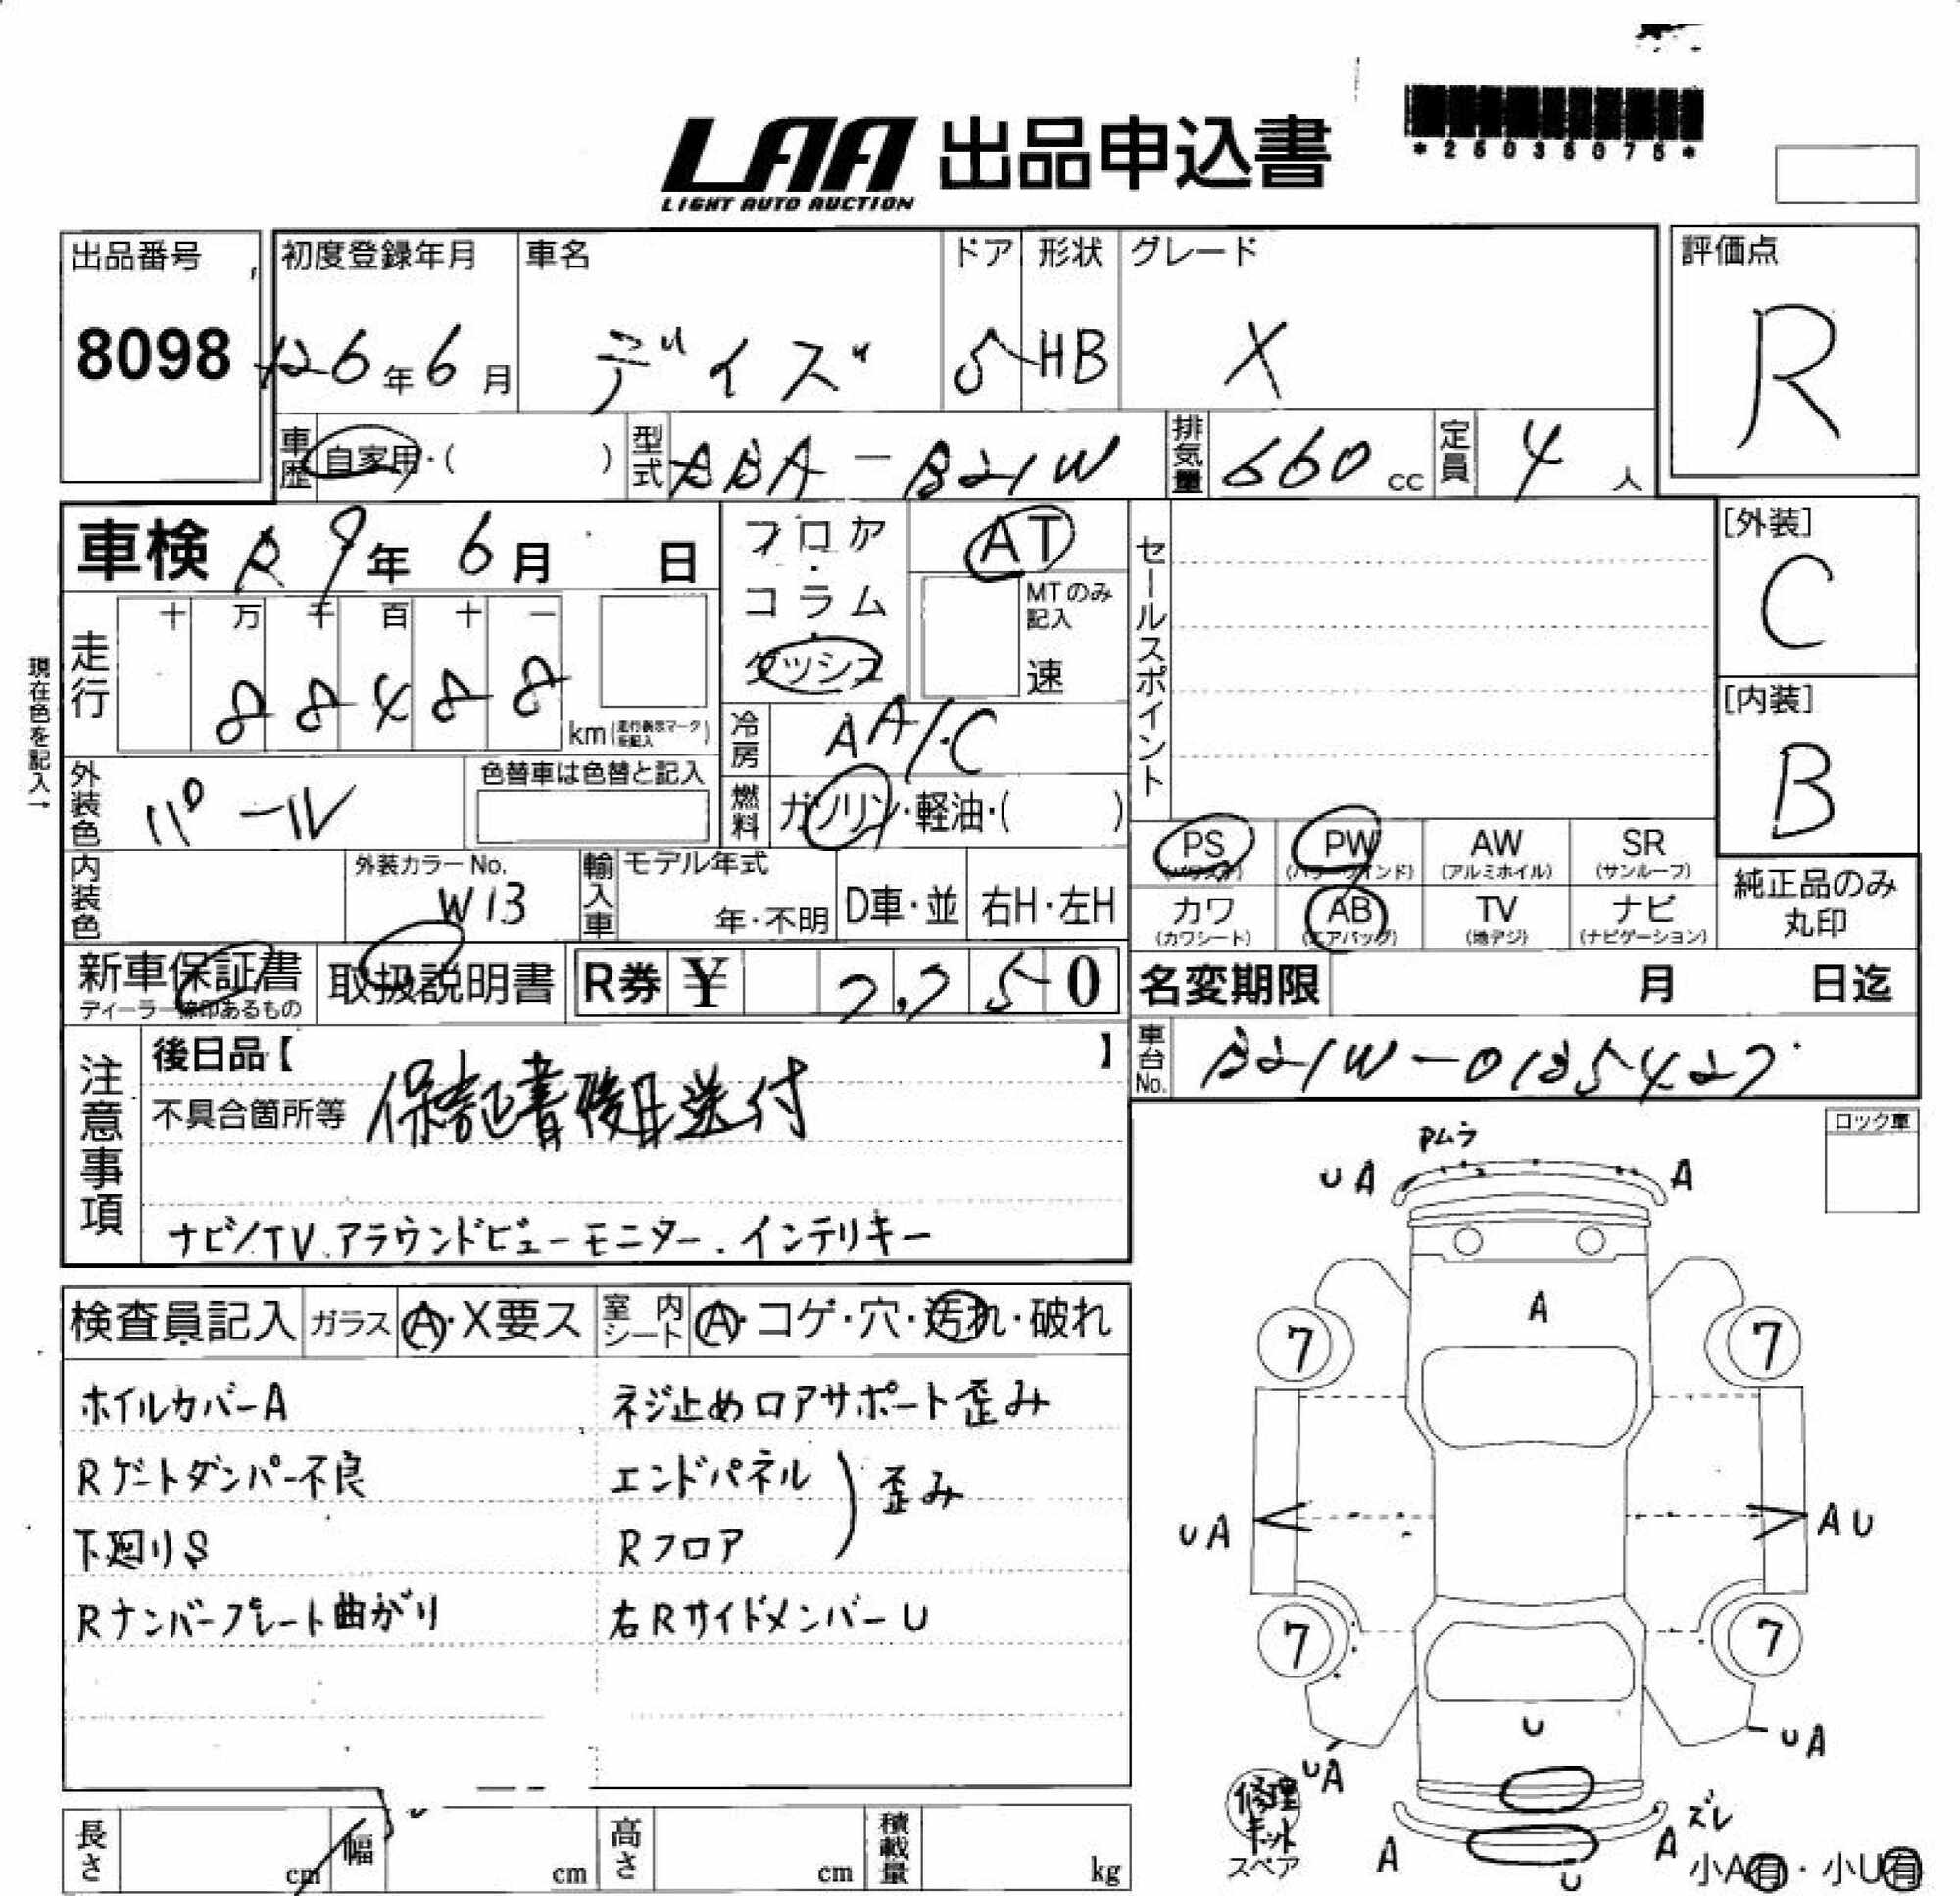 LAA 出品申込書
LIGHT AUTO AUCTION
*25035075*
出品番号 初度登録年月 車名 ドア 形状 グレード 評価点
8098 H26年6月 デイズ 5 HB X R
車歴 自家用・( ) 型式 DBA-B21W 排気量 660cc 定員 4人
車検 R9年6月 日 フロア・コラム・ダッシュ AT セールスポイント [外装]
C
MTのみ記入
速
現在色を記入→
走行 十 万 千 百 十 一
88488 km(走行表示マークを記入)
冷房 AA/C [内装]
B
外装色 パール 色替車は色替と記入 燃料 ガソリン・軽油・( )
PS (パワステ) PW (パワーウインド) AW (アルミホイル) SR (サンルーフ)
内装色 外装カラーNo. W13 輸入車 モデル年式 年・不明 D車・並 右H・左H
カワ (カワシート) AB (エアバッグ) TV (地デジ) ナビ (ナビゲーション) 純正品のみ丸印
新車保証書 ディーラー捺印あるもの 取扱説明書 R券 ¥ 7,750 名変期限 月 日迄
注意事項 後日品【 】 車台No. B21W-0135427
不具合箇所等 保証書後日送付
ロック車
ナビ/TV.アラウンドビューモニター.インテリキー
Pムラ
UA A
検査員記入 ガラス A・X要ス 室内シート A・コゲ・穴・汚れ・破れ
A
7 7
ホイルカバーA ネジ止めロアサポート歪み
Rゲートダンパー不良 エンドパネル
歪み
下廻りS Rフロア
UA AU
Rナンバープレート曲がり 右RサイドメンバーU
7 7
U
UA UA
修理キット
スペア
ズレ
A A
U
小A有・小U有
長さ cm 幅 cm 高さ cm 積載量 kg